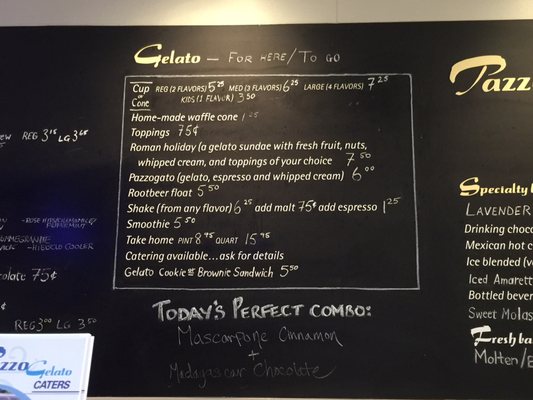 Gelato — FOR HERE/TO GO
Cup or Cone REG (2 FLAVORS) 5.25 MED (3 FLAVORS) 6.25 LARGE (4 FLAVORS) 7.25
KIDS (1 FLAVOR) 3.50
Home-made waffle cone 1.25
Toppings 75¢
Roman holiday (a gelato sundae with fresh fruit, nuts,
whipped cream, and toppings of your choice 7.50
Pazzogato (gelato, espresso and whipped cream) 6.00
Rootbeer float 5.50
Shake (from any flavor) 6.25 add malt 75¢ add espresso 1.25
Smoothie 5.50
Take home PINT 8.75 QUART 15.95
Catering available...ask for details
Gelato Cookie or Brownie Sandwich 5.50
TODAY'S PERFECT COMBO:
Mascarpone Cinnamon
+
Madagascar Chocolate
REG 3.15 LG 3.65
75¢
REG 3.00 LG 3.50
Gelato
CATERS
Pazzo
Specialty
LAVENDER
Drinking choco
Mexican hot c
Ice blended (v
Iced Amarett
Bottled bever
Sweet Molas
Fresh ba
Molten/